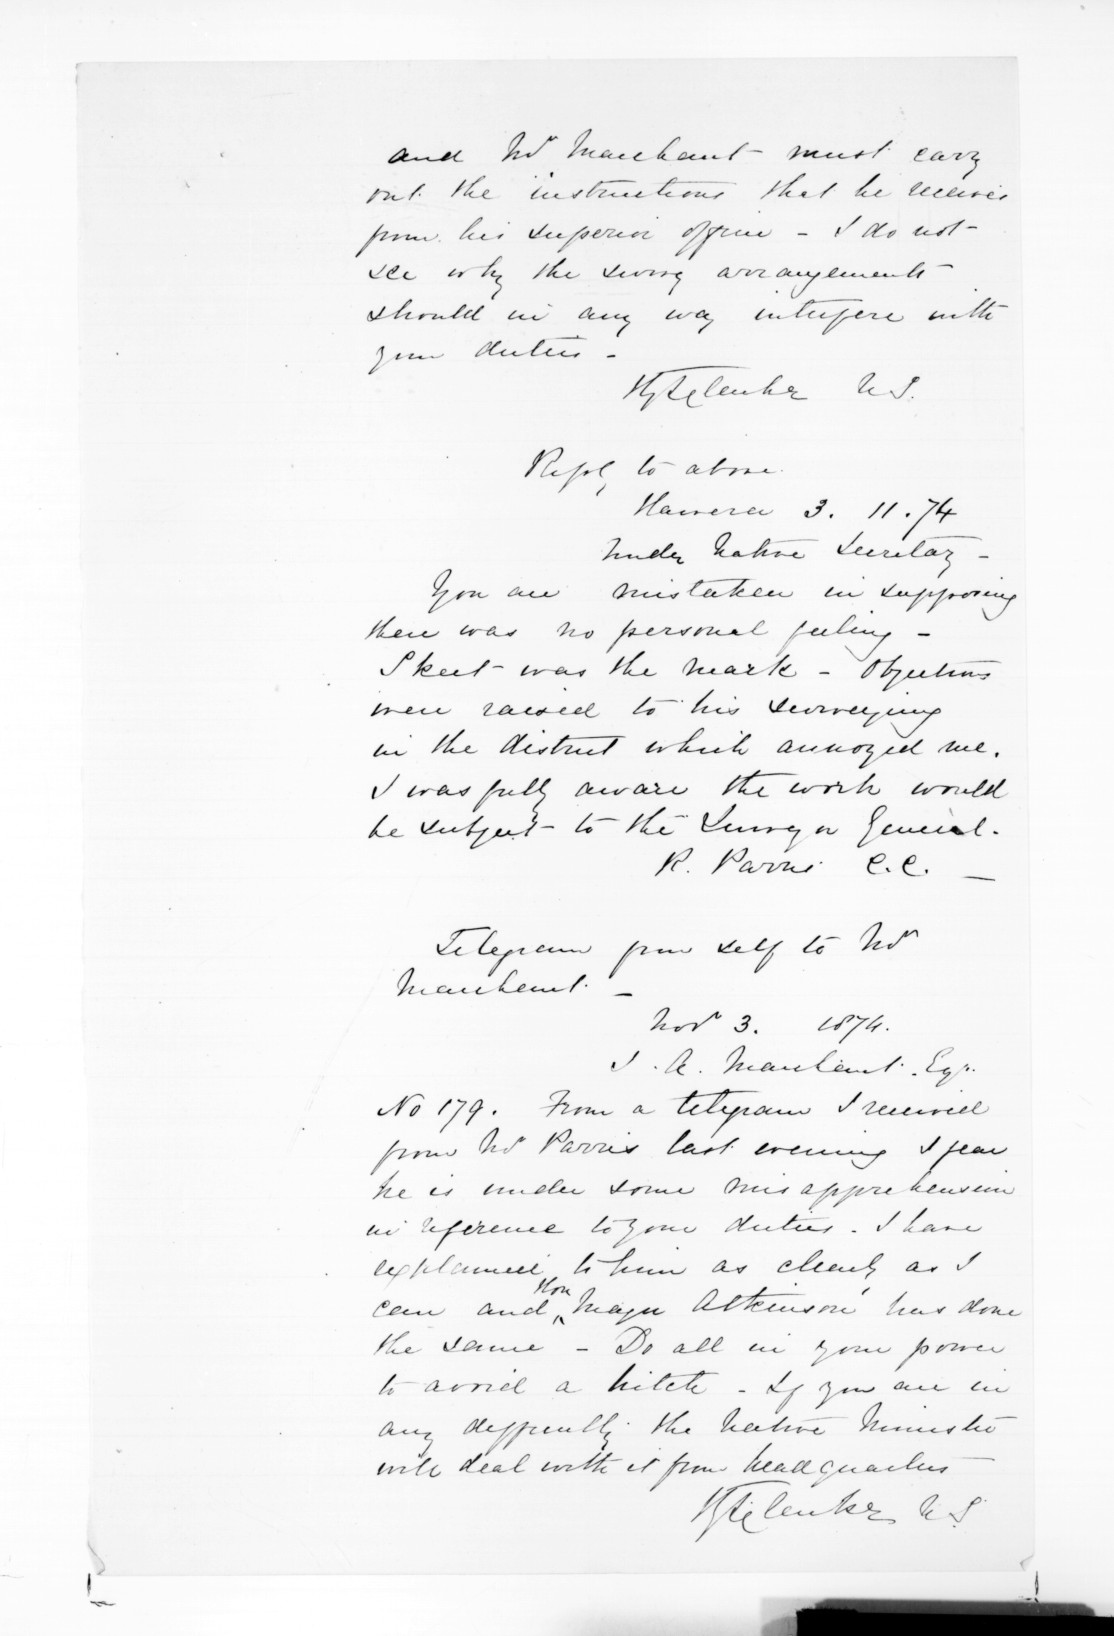 and Mr Marchant must carry
out the instructions that he receives
from his superior officer - I do not
see why the survey arrangements
should in any way interfere with
your duties -
H. T. Clarke U S.
Reply to above.
Hawera 3. 11. 74
Under Native Secretary -
You are mistaken in supposing
there was no personal feeling -
Skeet was the mark - Objections
were raised to his surveying
in the district which annoyed me.
I was fully aware the work would
be subject to the Surveyor General.
R. Parris C.C. -
Telegram from self to Mr
Marchant -
Novr 3. 1874.
J. A. Marchant. Esqr.
No 179. From a telegram I received
from Mr Parris last evening I fear
he is under some misapprehension
in reference to your duties. I have
explained to him as clearly as I
can and Hon Major Atkinson has done
the same - Do all in your power
to avoid a hitch - If you are in
any difficulty the Native Minister
will deal with it from headquarters
H. T. Clarke U S.